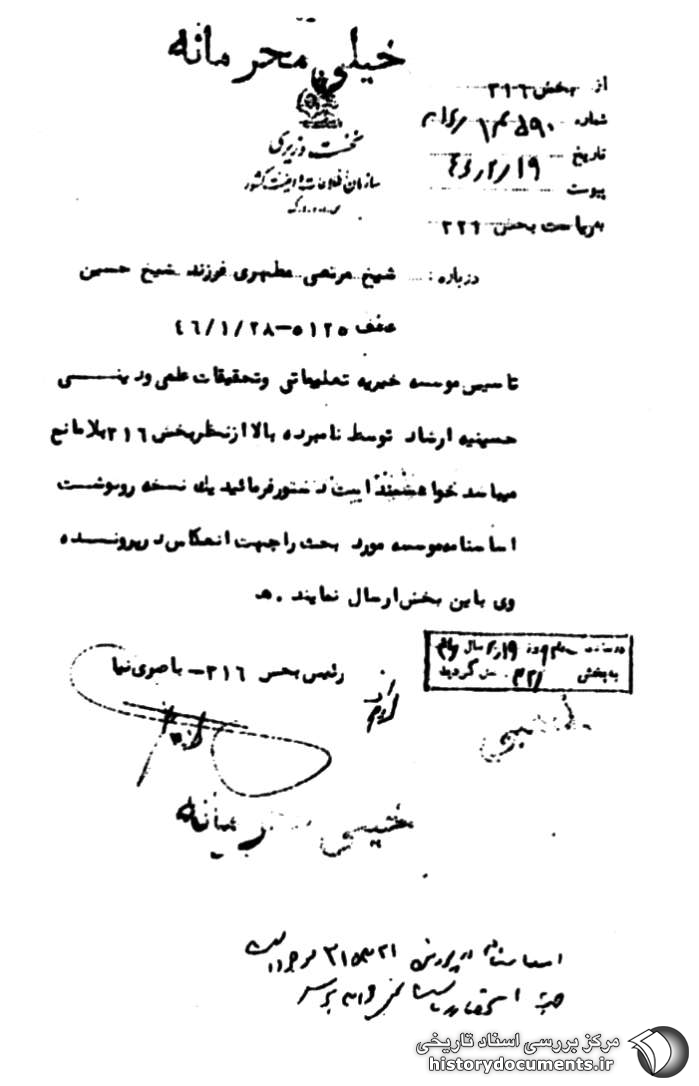 خیلی محرمانه
نخست وزیری
سازمان اطلاعات و امنیت کشور
س.ا.و.ا.ک
از بخش ۳۱۶
شماره
تاریخ ۴۶/۲/۱۹
پیوست
به ریاست بخش
درباره : شیخ مرتضی مطهری فرزند شیخ حسین
عطف ۵۱۲۵-۴۶/۱/۲۸
تاسیس موسسه خیریه تعلیماتی وتحقیقات علمی ودینـــی
حسینیه ارشاد توسط نامبرده بالا ازنظربخش ۳۱۶ بلامانع
میباشد خواهشمند است دستورفرمائید یك نسخه رونوشت
اساسنامه موسسه مورد بحث راجهت انعکاس درپرونـــده
وی باین بخش ارسال نمایند .ه
رئیس بخش ۳۱۶-
سال
به بخش گردید
خیلی محرمانه
مرکز بررسی اسناد تاریخی
historydocuments.ir